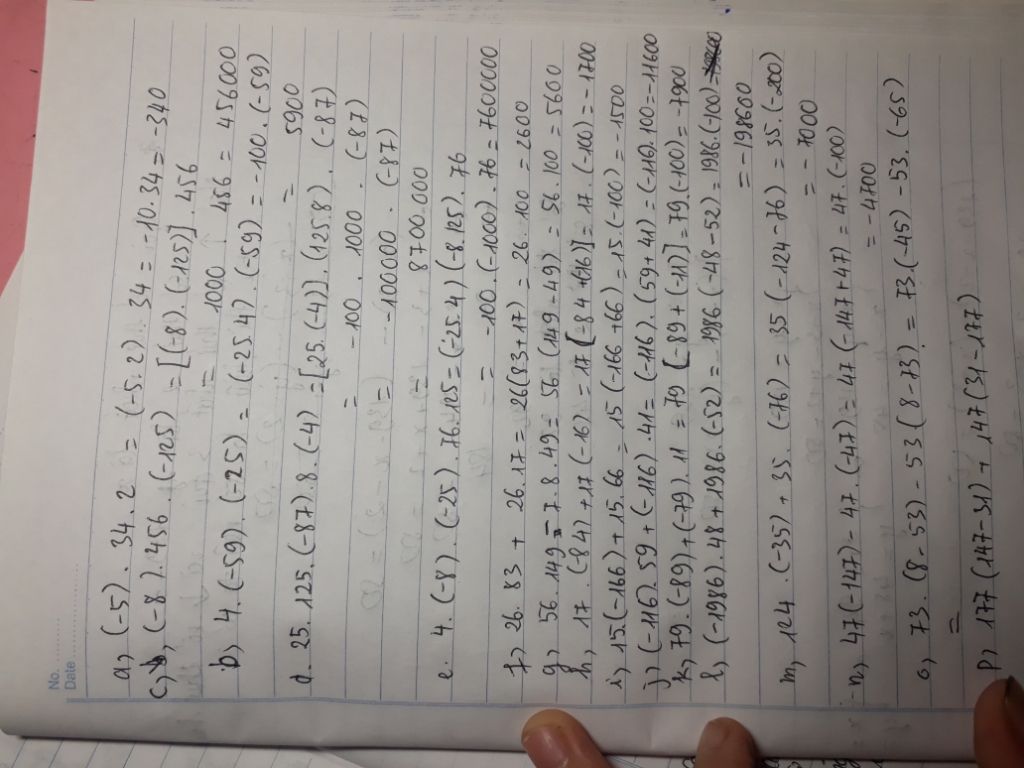 No. ............
Date ............
a, (-5) . 34 . 2 = (-5 . 2) . 34 = -10 . 34 = -340
c, (-8) . 456 . (-125) = [(-8) . (-125)] . 456
= 1000 . 456 = 456000
b, 4 . (-59) . (-25) = (-25 4) . (-59) = -100 . (-59)
= 5900
d. 25 . 125 . (-87) . 8 . (-4) = [25 . (-4)] . (125 8) . (-87)
= -100 . 1000 . (-87)
= -100000 . (-87)
= 8700.000
e. 4 . (-8) . (-25) . 76 . 125 = (-25 . 4) (-8 . 125) . 76
= -100 . (-1000) . 76 = 7600000
f, 26 . 83 + 26 . 17 = 26 (83 + 17) = 26 . 100 = 2600
g, 56 . 149 - 7 . 8 . 49 = 56 (149 - 49) = 56 . 100 = 5600
h, 17 . (-84) + 17 (-16) = 17 [-84 + (-16)] = 17 . (-100) = -1700
i, 15 . (-166) + 15 . 66 = 15 (-166 + 66) = 15 . (-100) = -1500
j, (-116) . 59 + (-116) . 41 = (-116) . (59 + 41) = (-116) . 100 = -11600
k, 79 . (-89) + (-79) . 11 = 79 [-89 + (-11)] = 79 (-100) = -7900
l, (-1986) . 48 + 1986 . (-52) = 1986 (-48 - 52) = 1986 . (-100)
= -198600
m, 124 . (-35) + 35 . (-76) = 35 (-124 - 76) = 35 . (-200)
= -7000
n, 47 (-147) - 47 . (-47) = 47 (-147 + 47) = 47 . (-100)
= -4700
o, 73 . (8 - 53) - 53 (8 - 73) = 73 . (-45) - 53 . (-65)
=
p, 177 (147 - 31) + 147 (31 - 177)